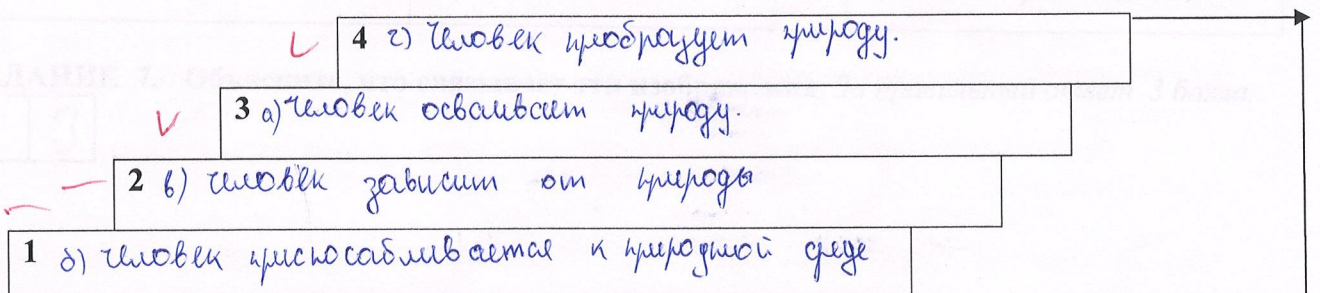 4 г) Человек преобразует природу.
3 а) Человек осваивает природу.
2 в) Человек зависит от природы
1 б) Человек приспосабливается к природной среде